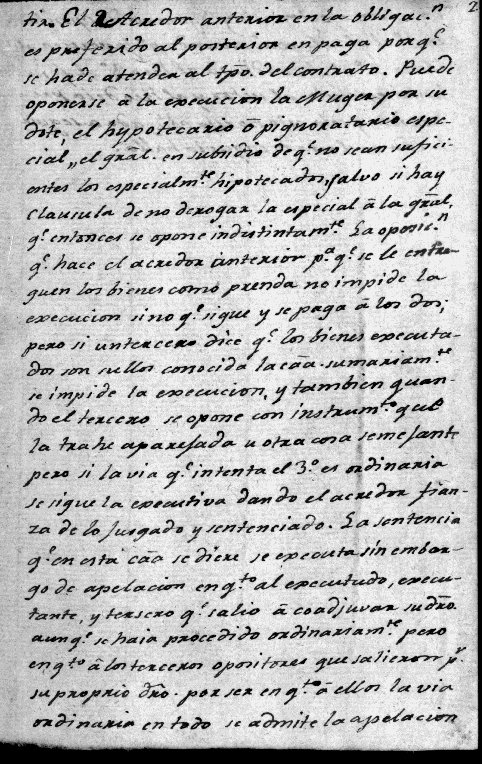 2
tir. El Acredor anterior en la obligac.n
es preferido al posterior en paga porq.e
se ha de atender al tpõ. del contrato. Puede
oponerse â la execucion la Muger por su
dote, el hypotecario ô pignoratario espe-
cial, el grãl. en subsidio de q.e no sean sufici-
entes los especialm.te hipotecados, salvo si hay
clausula de no derogar la especial â la grãl,
q.e entonces se opone indistintam.te La oposic.n
q.e hace el acredor anterior p.a q.e se le entre
guen los bienes como prenda no impide la
execucion si no q.e sigue y se paga â los dos;
pero si un tercero dice q.e los bienes executa-
dos son sullos conocida la cãa. sumariam.te
se impide la execucion, y tambien quan-
do el tercero se opone con instrum.to que
la trahe aparejada u otra cosa semejante
pero si la via q.e intenta el 3.o es ordinaria
se sigue la executiva dando el acredor fian-
za de lo jusgado y sentenciado. La sentencia
q.e en esta cãa se diere se executa sin embar-
go de apelacion en q.to al executudo, execu-
tante, y tersero q.e salio â coadjuvar su drõ.
aunq.e se haia procedido ordinariam.te pero
en q.to â los terceros opositores que salieron p.r
su proprio drõ. por ser en q.to â ellos la via
ordinaria en todo se admite la apelacion